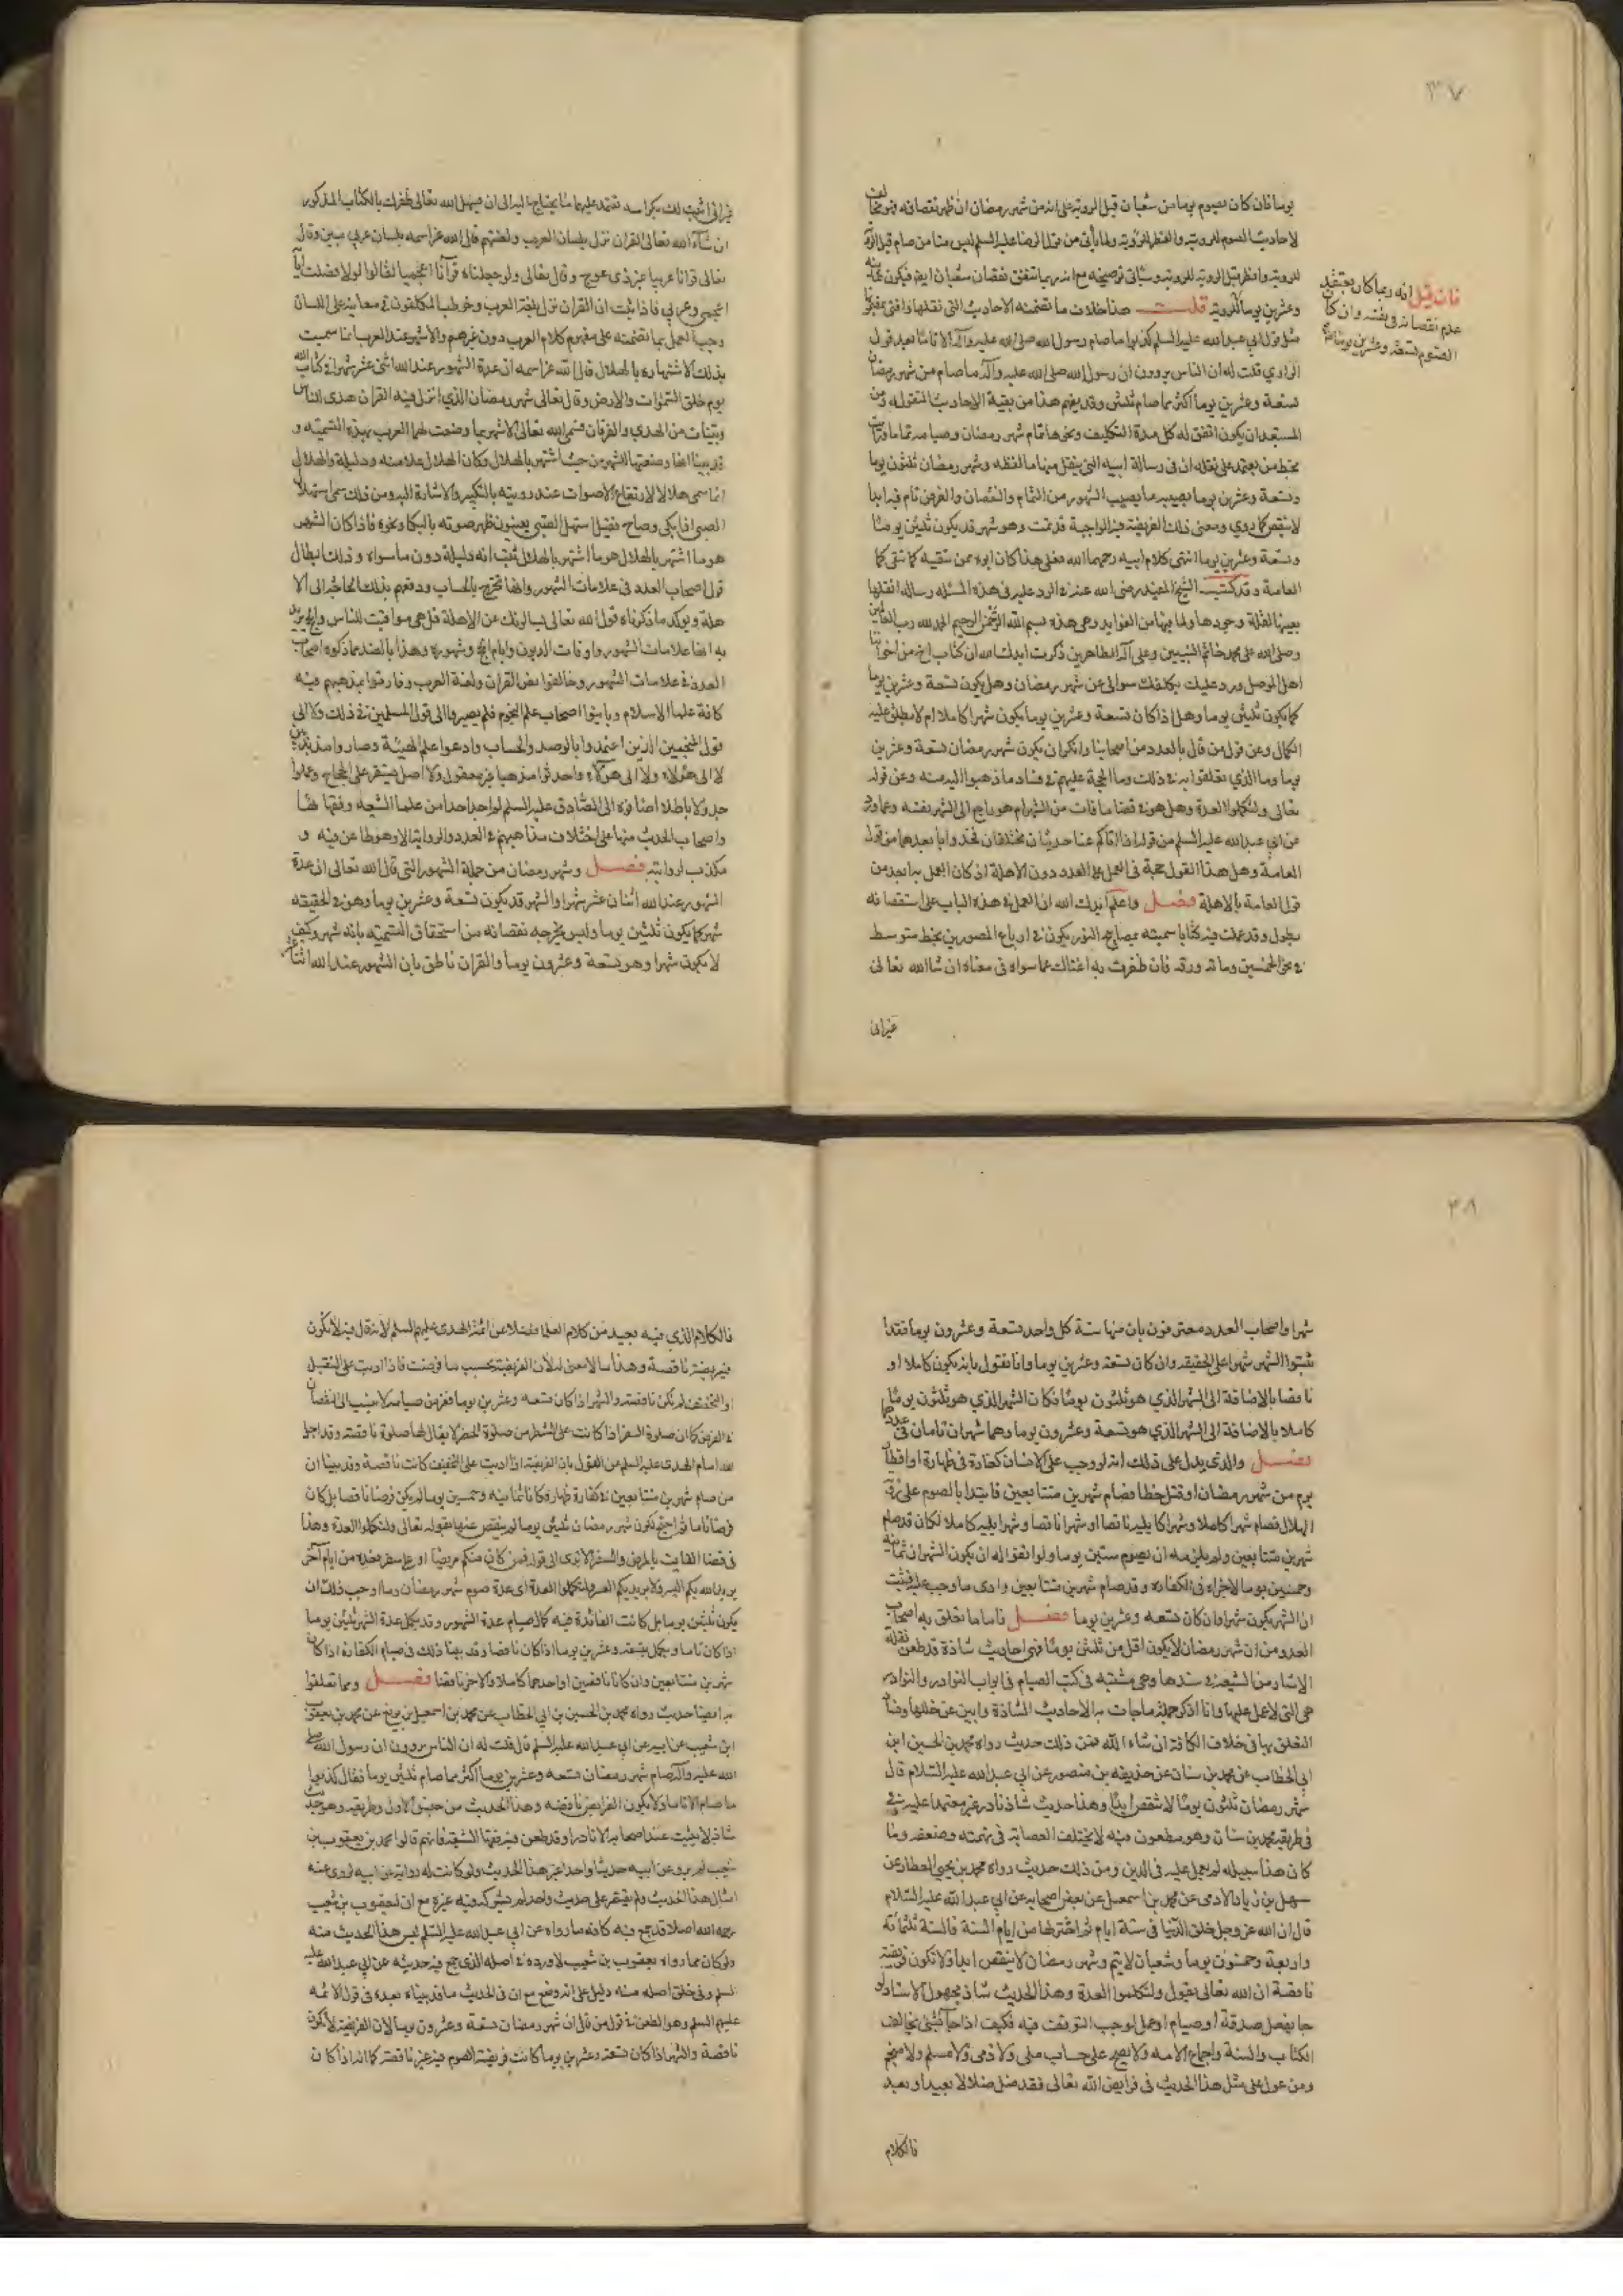 ٣٧
يوما فان كان يصوم يوما من شعبان قبل الروية على انه من شهر رمضان ان ظهر نقصانه فهو مخالف
لاحاديث الصوم للروية والفطر للروية ولما يأتي من قول الرضا عليه السلم ليس منا من صام قبل الروية
للروية وافطر قبل الروية للروية وسياتي توضيحه مع انه ربما يتفق نقصان شعبان ايضا فيكون
وعشرين يوما للروية قلت هذا خلاف ما تضمنته الاحاديث التي نقلها وافتى
مثل قول ابي عبد الله عليه السلم كذبوا ما صام رسول الله صلى الله عليه وآله الا تاما بعد قول
الراوي قلت له ان الناس يروون ان رسول الله صلى الله عليه وآله ما صام من شهر رمضان
تسعة وعشرين يوما اكثر مما صام ثلثين وقد يفهم هذا من بقية الاحاديث المنقولة ومن
المستبعد ان يكون اتفق له كل مدة التكليف ونحوها تمام شهر رمضان وصيامه تماما
بخط من يعتمد على نقله ان في رسالة ابيه التي ينقل منها ما لفظه وشهر رمضان ثلثون يوما
وتسعة وعشرين يوما يصيبه ما يصيب الشهور من التمام والنقصان والفرض تام فيه ابدا
لا ينقص كما روي ومعنى ذلك الفريضة فيه الواجبة قد تمت وهو شهر قد يكون ثلثين يوما
وتسعة وعشرين يوما انتهى كلام ابيه رحمهما الله فعلى هذا كان ابوه ممن يتقيه كما تتقى
العامة وقد كتب الشيخ المفيد رضي الله عنه في الرد عليه في هذه المسئلة رسالة انقلها
بعينها لقلة وجودها ولما فيها من الفوايد وهي هذه بسم الله الرحمن الرحيم الحمد لله رب العالمين
وصلى الله على محمد خاتم النبيين وعلى آله الطاهرين ذكرت ايدك الله ان كتاب اخ من اخواننا
اهل الموصل ورد عليك يكلفك سوالي عن شهر رمضان وهل يكون تسعة وعشرين يوما
كما يكون ثلثين يوما وهل اذا كان تسعة وعشرين يوما يكون شهرا كاملا ام لا يطلق عليه
الكمال وعن قول من قال بالعدد من اصحابنا وانكر ان يكون شهر رمضان تسعة وعشرين
يوما وما الذي تعلقوا به في ذلك وما الحجة عليهم في فساد ما ذهبوا اليه منه وعن قوله
تعالى ولتكملوا العدة وهل هو في قضا ما فات من الشهر ام هو راجع الى الشهر نفسه وعما
عن ابي عبد الله عليه السلم من قوله اذا اتاكم عنا حديثان مختلفان فخذوا بابعدهما من قول
العامة وهل هذا القول حجة في العمل على العدد دون الاهلة اذ كان العمل به ابعد من
قول العامة بالاهلة فصل واعلم ايدك الله ان العمل في هذا الباب على استقصائه
يطول وقد عملت فيه كتابا سميته مصابيح النور يكون في ارباع المنصوري بخط متوسط
في نحو الخمسين ومائة ورقة فان ظفرت به اغناك عما سواه في معناه ان شاالله تعالى
غيراني
فان قيل انه ربما كان يعتقد
عدم نقصانه في نفسه وان كان
الصوم تسعة وعشرين يوما
غيراني اثبت لك نكرا سد تعتمد عليها مما يحتاج اليه الى ان يسهل الله تعالى ظفرك بالكتاب المذكور
ان شاء الله تعالى القران نزل بلسان العرب ولغتهم قال الله عز اسمه بلسان عربي مبين وقال
تعالى قرانا عربيا غير ذي عوج وقال تعالى ولو جعلناه قرآنا اعجميا لقالوا لولا فصلت اياته
اعجمي وعربي فاذا ثبت ان القران نزل بلغة العرب وخوطب المكلفون في معانيه على اللسان
وجب العمل بما تضمنته على مفهوم كلام العرب دون غيرهم والاشهر عند العرب انما سميت
بذلك لاشتهاره بالهلال قال الله عز اسمه ان عدة الشهور عند الله اثنى عشر شهرا في كتاب الله
يوم خلق السموات والارض وقال تعالى شهر رمضان الذي انزل فيه القران هدى للناس
وبينات من الهدى والفرقان فسمى الله تعالى الاشهر بما وضعت لها العرب بهذه التسمية و
قد بينا انها وضعتها للشهر من حيث اشتهر بالهلال وكان الهلال علامته ودليله والهلال
انما سمي هلالا لارتفاع الاصوات عند رويته بالتكبير والاشارة اليه ومن ذلك سمي استهلال
الصبي اذا بكى وصاح فقيل استهل الصبي يعنون ظهر صوته بالبكا ونحوه فاذا كان الشهر
هو ما اشتهر بالهلال هو ما اشتهر بالهلال ثبت انه دليله دون ما سواه وذلك ابطال
قول اصحاب العدد في علامات الشهور وانها تخرج بالحساب ودفعهم بذلك الحاجة الى الا
هلة ويوكد ما ذكرناه قول الله تعالى يسالونك عن الاهلة قل هي مواقيت للناس والحج يريد
به انها علامات الشهور واوقات الديون وايام الحج وشهوره وهذا بالضد مما ذكره اصحاب
العدد في علامات الشهور وخالفوا نص القران ولغة العرب وفارقوا بمذهبهم فيه
كافة علما الاسلام وباينوا اصحاب علم النجوم فلم يصيروا الى قول المسلمين في ذلك ولا الى
قول المنجمين الذين اعتمدوا بالرصد والحساب وادعوا علم الهيئة وصاروا مذبذبين
لا الى هؤلاء ولا الى هؤلاء واحدثوا مذهبا غير معقول ولا اصل يستقر على الحجاج وعملوا
جدولا باطلا اضافوه الى الصادق عليه السلم لواحد احدا من علما الشيعة وفقهائها
واصحاب الحديث منها على اختلاف مذاهبهم في العدد والرواية الا وهو طاعن فيه و
مكذب لروايته فصل وشهر رمضان من جملة الشهور التي قال الله تعالى ان عدة
الشهور عند الله اثنان عشر شهرا والشهر قد يكون تسعة وعشرين يوما وهو في الحقيقة
شهر كما يكون ثلثين يوما وليس يخرجه نقصانه من استحقاق التسمية بانه شهر وكيف
لا يكون شهرا وهو تسعة وعشرون يوما والقران ناطق بان الشهور عند الله اثنا عشر
٣٨
شهرا واصحاب العدد معترفون بان منها ستة كل واحد تسعة وعشرون يوما فقد
ثبتوا الشهر شهرا على الحقيقة وان كان تسعة وعشرين يوما وانا نقول بانه يكون كاملا او
ناقصا بالاضافة الى الشهر الذي هو ثلثون يوما فكان الشهر الذي هو ثلثون يوما
كاملا بالاضافة الى الشهر الذي هو تسعة وعشرون يوما وهما شهران تامان في عددهما
فصل والذي يدل على ذلك انه لو وجب على الانسان كفارة في ظهارة او افطار
يوم من شهر رمضان او قتل خطا فصام شهرين متتابعين فابتدا بالصوم على روية
الهلال فصام شهرا كاملا وشهرا كا يليه ناقصا او شهرا ناقصا وشهرا يليه كاملا لكان قد صام
شهرين متتابعين ولم يلزمه ان يصوم ستين يوما ولو اتفق له ان يكون الشهران ثمانية
وخمسين يوما لاجزاه في الكفاره وقد صام شهرين متتابعين وادى ما وجب عليه فثبت
ان الشهر يكون شهرا وان كان تسعة وعشرين يوما فصل فاما ما تعلق به اصحاب
العدد من ان شهر رمضان لا يكون اقل من ثلثين يوما فهي احاديث شاذة قد طعن نقلة
الاثار من الشيعة في سندها وهي مثبته في كتب الصيام في ابواب النوادر والنوادر
هي التي لا عمل عليها وانا اذكر جملة ما جات به الاحاديث الشاذة وابين عن خللها وفساد
التعلق بها في خلاف الكافة ان شاء الله فمن ذلك حديث رواه محمد بن الحسين ابن
ابي الخطاب عن محمد بن سنان عن حذيفة بن منصور عن ابي عبد الله عليه السلام قال
شهر رمضان ثلثون يوما لا ينقص ابدا وهذا حديث شاذ نادر غير معتمد عليه
في طريقه محمد بن سنان وهو مطعون فيه لا يختلف العصابة في تهمته وضعفه وما
كان هذا سبيله لم يعمل عليه في الدين ومن ذلك حديث رواه محمد بن يحيى العطار عن
سهل بن زياد الادمي عن محمد بن اسمعيل عن بعض اصحابه عن ابي عبد الله عليه السلام
قال ان الله عز وجل خلق الدنيا في ستة ايام ثم اختزلها من ايام السنة فالسنة ثلثمائة
واربعة وخمسون يوما وشعبان لا يتم وشهر رمضان لا ينقص ابدا ولا تكون فريضة
ناقصة ان الله تعالى يقول ولتكملوا العدة وهذا الحديث شاذ مجهول الاسناد لو
جا بفضل صدقة او صيام او عمل لوجب التوقف فيه فكيف اذا جا بشئ يخالف
الكتاب والسنة واجماع الامه ولا يصح على حساب ملي ولا ذمي ولا مسلم ولا منجم
ومن عول على مثل هذا الحديث في فرايض الله تعالى فقد ضل ضلالا بعيدا وبعد
فالكلام
فالكلام الذي فيه بعيد من كلام العلما فضلا عن ائمة الهدى عليهم السلم لانه قال فيه لا يكون
فريضة ناقصة وهذا ما لا معنى له لان الفريضة بحسب ما فرضت فاذا اديت على الثقيل
او التخفيف لم تكن ناقصة والشهر اذا كان تسعة وعشرين يوما ففرض صيامه لا ينسب الى النقصان
في الفرض كما ان صلوة السفر اذا كانت على الشطر من صلوة الحضر لا يقال لها صلوة ناقصة وقد اجل
الله امام الهدى عليه السلم عن القول بان الفريضة اذا اديت على التخفيف كانت ناقصة وقد بينا ان
من صام شهرين متتابعين في كفارة ظهاره كانا ثمانية وخمسين يوما لم يكن فرضا ناقصا بل كان
فرضا تاما ثم احتج بكون شهر رمضان ثلثين يوما لم ينقص عنها بقوله تعالى ولتكملوا العدة وهذا
في قضا الفايت بالمرض والسفر الا ترى الى قوله فمن كان منكم مريضا او على سفر فعدة من ايام آخر
يريد الله بكم اليسر ولا يريد بكم العسر ولتكملوا العدة اي عدة صوم شهر رمضان وما اوجب ذلك ان
يكون ثلثين يوما بل كانت الفائدة فيه كمال صيام عدة الشهور وقد يكمل عدة الشهر ثلثين يوما
اذا كان تاما ويكمل بتسعة وعشرين يوما اذا كان ناقصا وقد بينا ذلك في صيام الكفارة اذا كان
شهرين متتابعين وان كانا ناقصين او احدهما كاملا والاخر ناقصا فصل ومما تعلقوا
به ايضا حديث رواه محمد بن الحسين بن ابي الخطاب عن محمد بن اسمعيل بن بزيع عن محمد بن يعقوب
ابن شعيب عن ابيه عن ابي عبد الله عليه السلم قال قلت له ان الناس يروون ان رسول الله صلى
الله عليه وآله صام شهر رمضان تسعة وعشرين يوما اكثر مما صام ثلثين يوما فقال كذبوا
ما صام الا تاما ولا يكون الفرايض ناقصة وهذا الحديث من جنس الاول وطريقه وهو حديث
شاذ لا يثبت عند اصحاب الاثار وقد طعن فيه فقها الشيعة فانهم قالوا محمد بن يعقوب بن
شعيب لم يرو عن ابيه حديثا واحدا غير هذا الحديث ولو كانت له رواية عن ابيه لروى عنه
امثال هذا الحديث ولم يقتصر على حديث واحد لم يشركه فيه غيره مع ان ليعقوب بن شعيب
رحمه الله اصلا قد جمع فيه كافة ما رواه عن ابي عبد الله عليه السلم ليس هذا الحديث منه
ولو كان مما رواه يعقوب بن شعيب لاورده في اصله الذي جمع فيه حديثه عن ابي عبد الله عليه
السلم وفي خلو اصله منه دليل على انه وضع مع ان في الحديث ما قد بيناه بعده في قول الائمه
عليهم السلم وهو الطعن في قول من قال ان شهر رمضان تسعة وعشرون يوما لان الفريضة لا تكون
ناقصة والشهر اذا كان تسعة وعشرين يوما كانت فريضة الصوم فيه غير ناقصة كما انه اذا كان